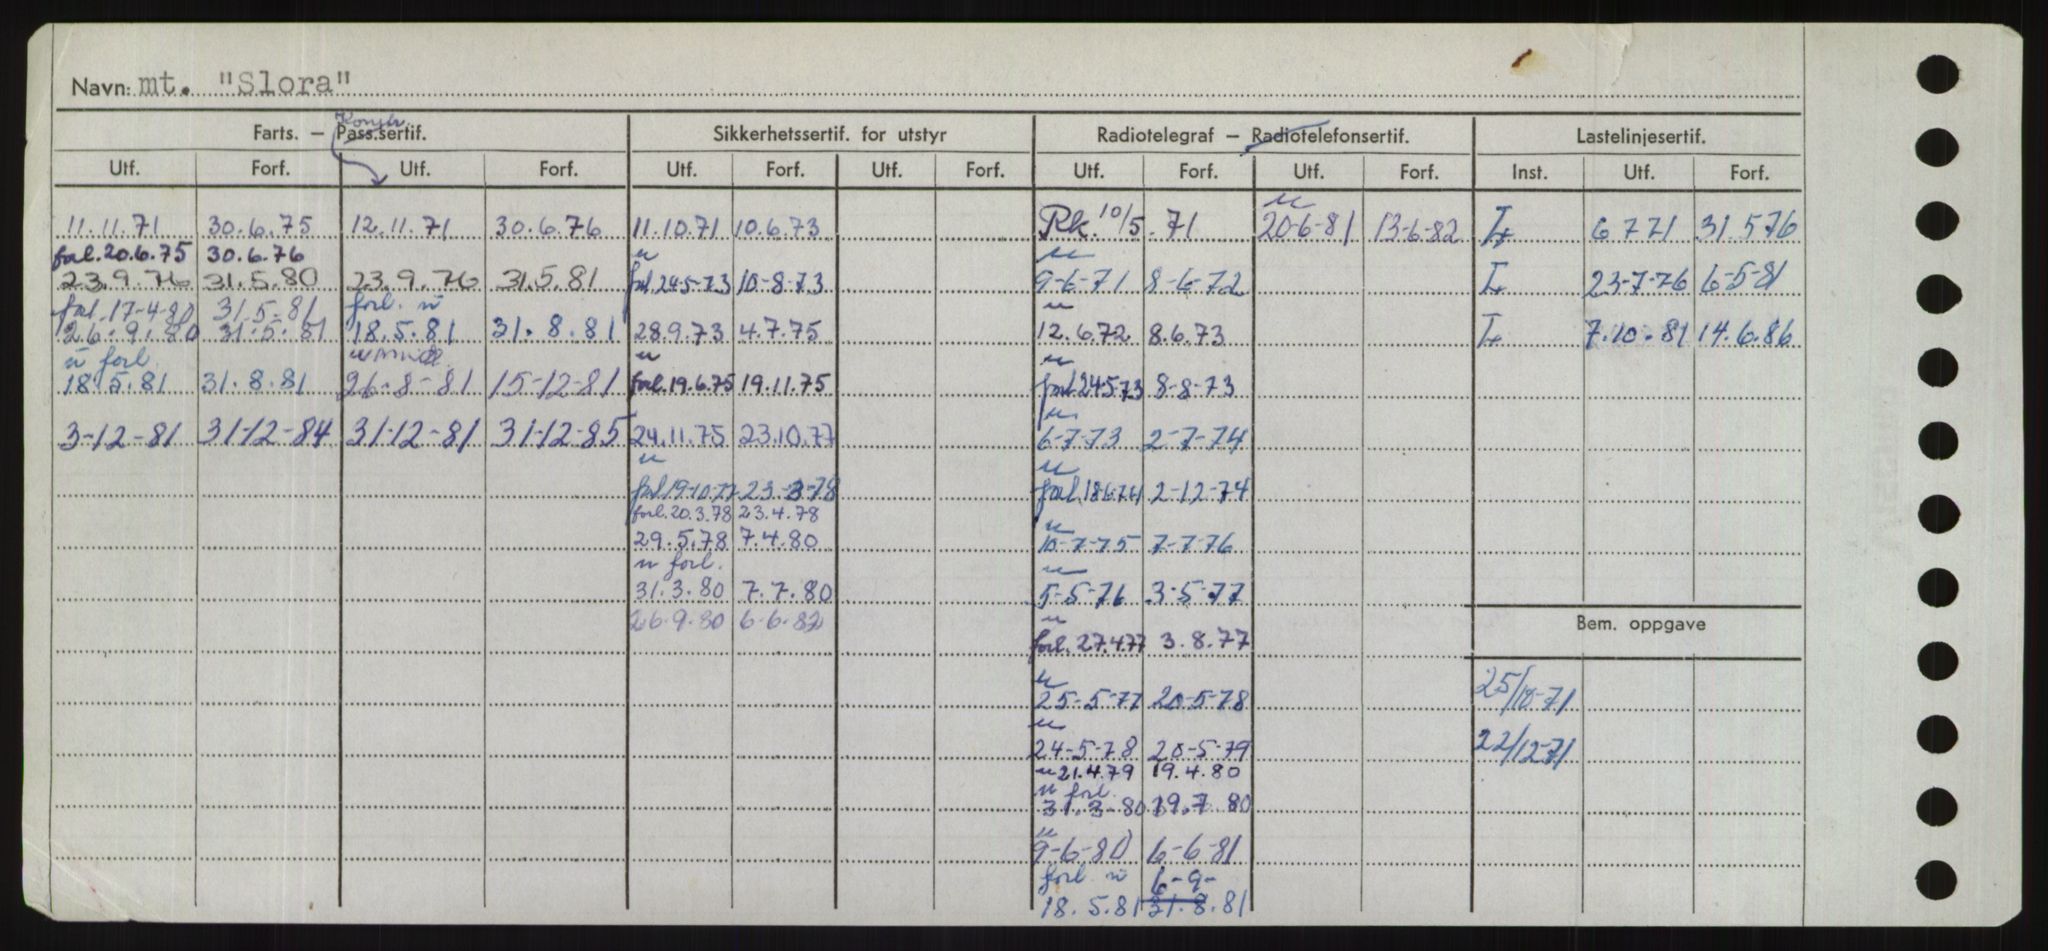 Navn: mt. "Slora"
Konstr.
Farts. — Pass.sertif. Sikkerhetssertif. for utstyr Radiotelegraf — Radiotelefonsertif. Lastelinjesertif.
Utf. Forf. Utf. Forf. Utf. Forf. Utf. Forf. Utf. Forf. Utf. Forf. Inst. Utf. Forf.
u
11.11.71 30.6.75 12.11.71 30.6.76 11.10.71 10.6.73 Rk. 10/5.71 20-6-81 13-6-82 L 6 7 71 31.5 76
forl. 20.6.75 30.6.76 u u
23.9.76 31.5.80 23.9.76 31.5.81 forl 24-5-73 10-8-73 9-6-71 8-6-72 L 23-7-76 6-5-81
forl. 17-4-80 31-5-81 forl. u u
26.9.80 31.5.81 18.5.81 31.8.81 28.9.73 4.7.75 12.6.72 8.6.73 L 7.10.81 14.6.86
u forl. u u
18.5.81 31.8.81 26-8-81 15-12-81 forl. 19.6.75 19.11.75 forl 24.5.73 8-8-73
u
3-12-81 31-12-84 31-12-81 31-12-85 24.11.75 23.10.77 6-7-73 2-7-74
u u
forl 19-10-77 23-3-78 forl 18.6.74 2-12-74
forl. 20.3.78 23.4.78 u
29.5.78 7.4.80 10-7-75 7-7-76
u forl. u
31.3.80 7.7.80 5-5-76 3-5-77
26.9.80 6-6.82 u
Bem. oppgave
forl. 27.4.77 3.8.77
u
25-5-77 20-5-78 25/10-71
u
24-5-78 20-5-79 22/12-71
u 21.4.79 19.4.80
u forl.
31.3-80 19.7.80
u
9-6-80 6-6-81
forl. u 6-9-
18.5.81 31.8.81